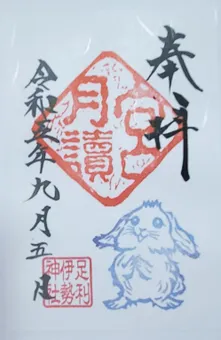 奉拝
月讀
令和五年九月五日
足利
伊勢
神社